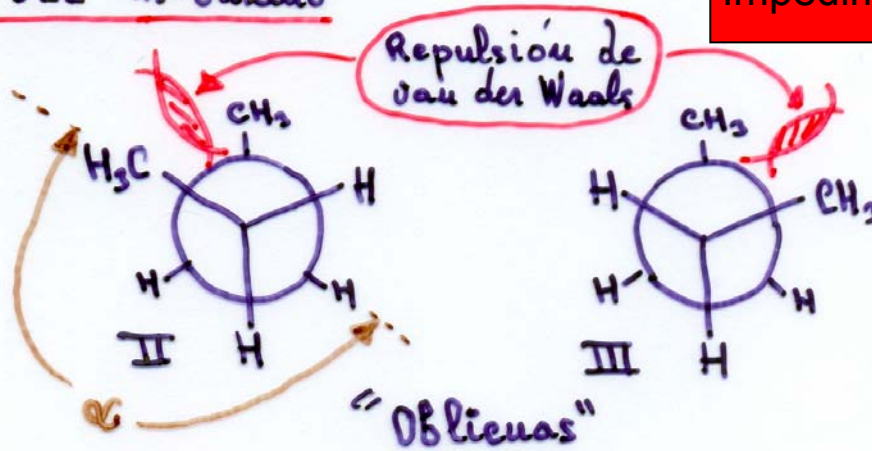 Repulsión de
van der Waals
CH₃
H₃C
H
H
H
H
II
CH₃
H
CH₃
H
H
H
III
α
"Oblicuas"